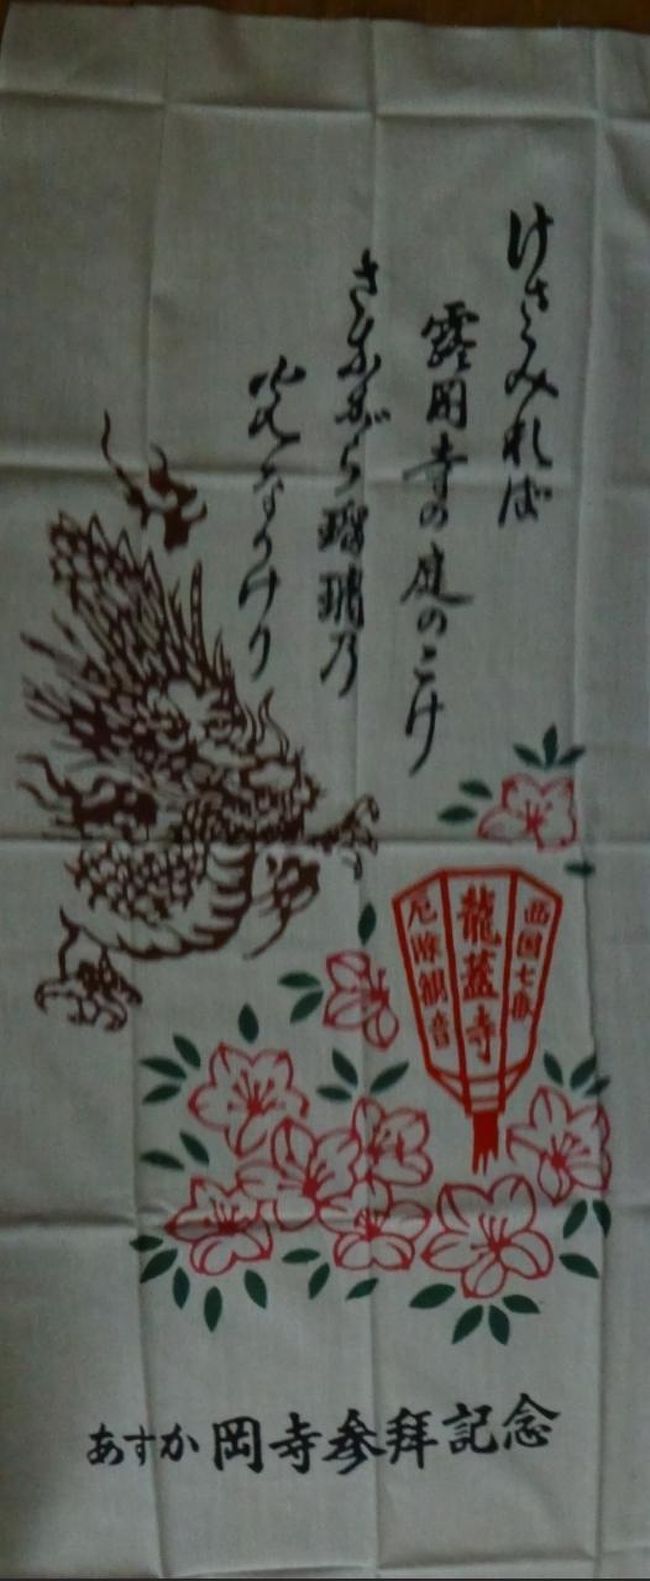 けさみれば
露岡寺の庭のこけ
さながら瑠璃乃
光なりけり
西国七番
龍蓋寺
厄除観音
あすか岡寺参拝記念